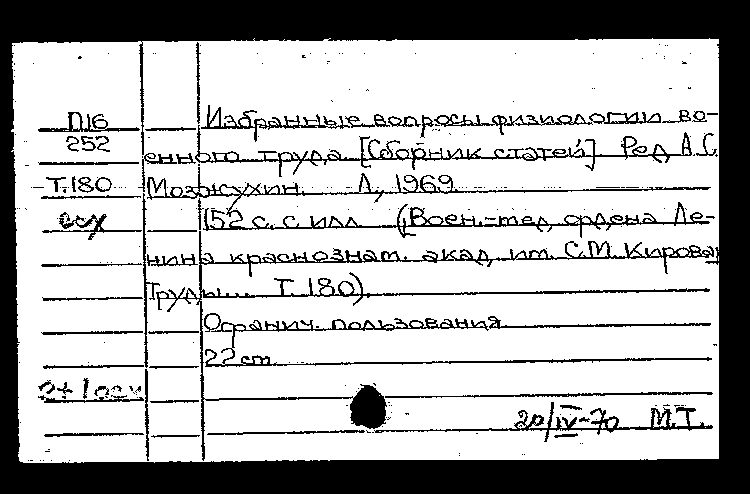 П16 Избранные вопросы физиологии во-
252 енного труда [Сборник статей]. Ред. А.С.
Т.180 Мозжухин. Л., 1969.
152 с. с илл. (Воен.-мед. ордена Ле-
нина краснознам. акад. им. С.М. Кирова
Труды... Т. 180).
Огранич. пользования
22 cm
20/IV-70 М.Т.